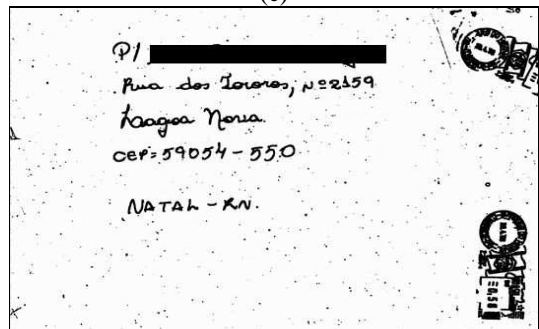 P/
Rua dos Tororos, Nº 2159
Laagoa Nova
CEP= 59054-550
NATAL - RN.